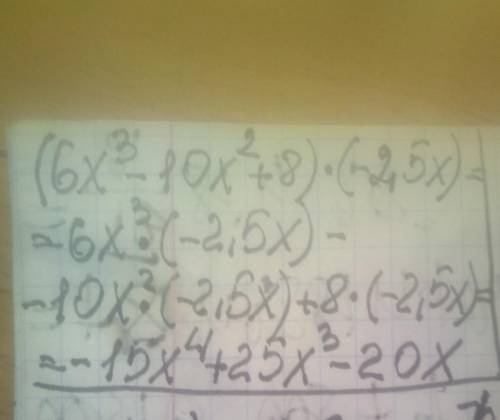 (6x³-10x²+8)·(-2,5x)=
=6x³·(-2,5x)-
-10x²·(-2,5x)+8·(-2,5x)=
=-15x⁴+25x³-20x